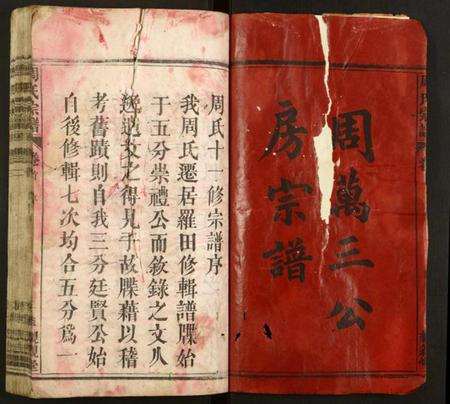 周萬三公
房宗譜
周氏十一修宗譜序
我周氏遷居羅田修輯譜牒始
于五分崇禮公而敘錄之文久
逸遇文之得見于故牒藉以稽
考舊蹟則自我三分廷賢公始
自後修輯七次均合五分爲一
周氏宗譜
卷首